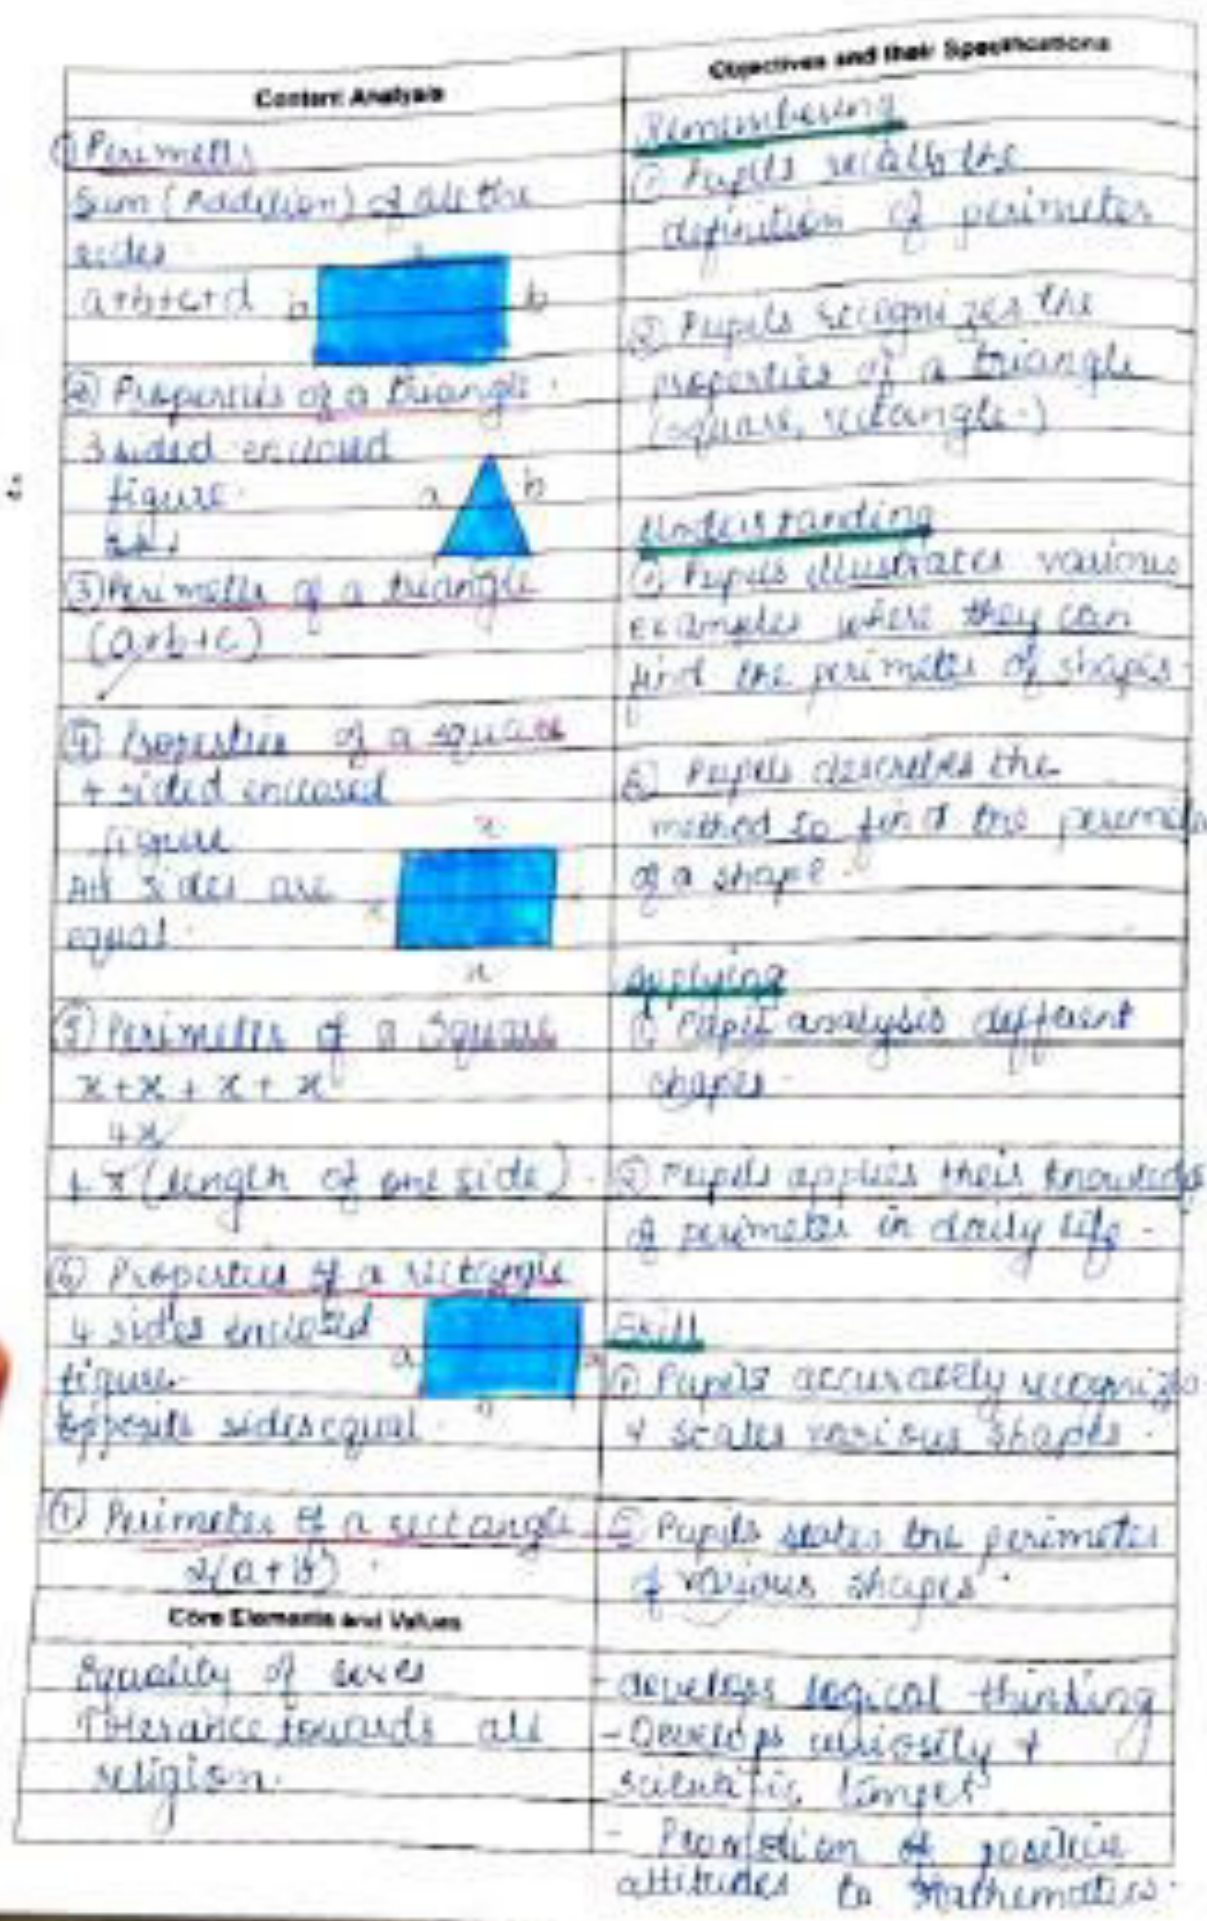 Content Analysis
① Perimeter
Sum (Addition) of all the
sides
a+b+c+d
b
② Properties of a triangle.
3 sided enclosed
figure.
a b
③ Perimeter of a triangle
(a+b+c)
④ Properties of a square
4 sided enclosed
figure
x
All sides are
x
equal.
x
⑤ Perimeter of a Square
x+x+x+x
4x
4 x (length of one side).
⑥ Properties of a rectangle
4 sides enclosed
a
figure.
Opposite sides equal.
⑦ Perimeter of a rectangle
2(a+b).
Core Elements and Values
Equality of sexes
Tolerance towards all
religion.
Objectives and their Specifications
Remembering
① Pupils recalls the
definition of perimeter
② Pupils recognizes the
properties of a triangle
(square, rectangle.)
Understanding
① Pupils illustrates various
examples where they can
find the perimeter of shapes.
② Pupils describes the
method to find the perimete
of a shape.
Applying
① Pupil analysis different
shapes.
② Pupils applies their knowledg
of perimeter in daily life.
Skill
① Pupils accurately recognize
& states various shapes.
② Pupils states the perimeter
of various shapes.
- develops logical thinking
- Develops curiosity &
scientific temper
- Promotion of positive
attitudes to Mathematics.